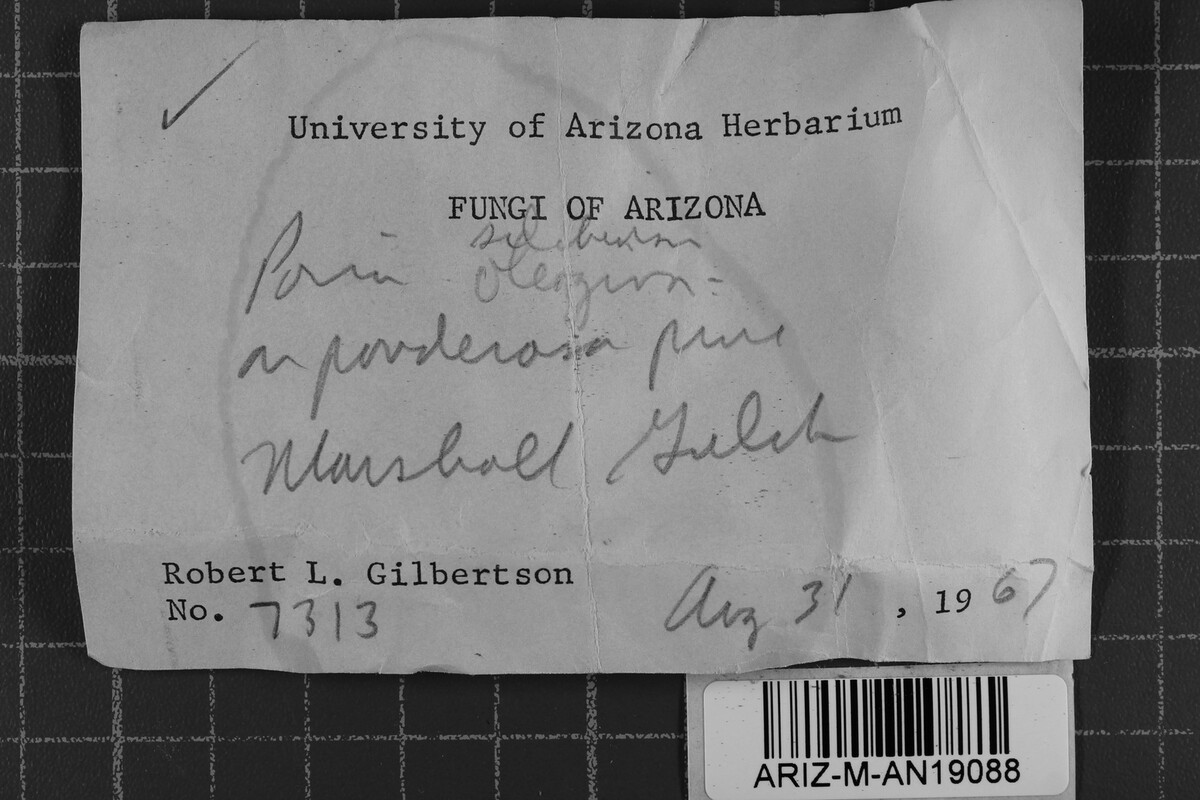 University of Arizona Herbarium
FUNGI OF ARIZONA
Poria
on ponderosa pine
Marshall Gulch
Robert L. Gilbertson
No. 7313
Aug 31, 1967
ARIZ-M-AN19088